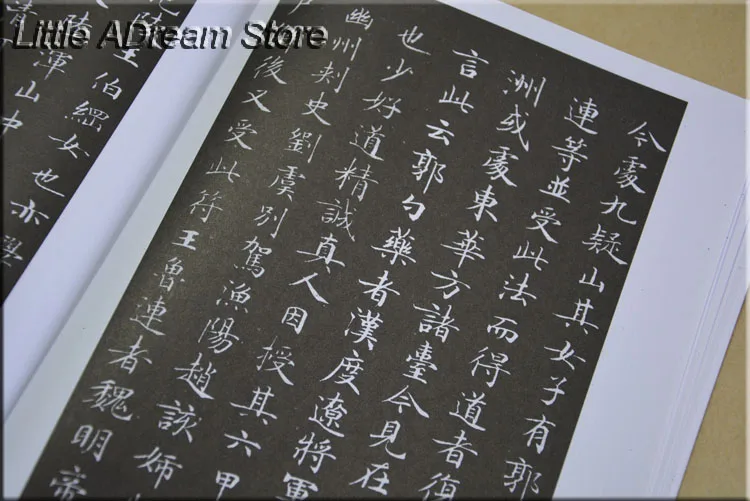 Little ADream Store
今處九疑山其女子有郭
連等並受此法而得道者復
洲或處東華方諸臺今見在
言此云郭勺藥者漢度遼將軍
也少好道精誠真人因授其六甲
幽州刺史劉虞別駕漁陽趙該姊
後又受此符王魯連者魏明帝
陵王伯綱女也亦學
陸渾山中